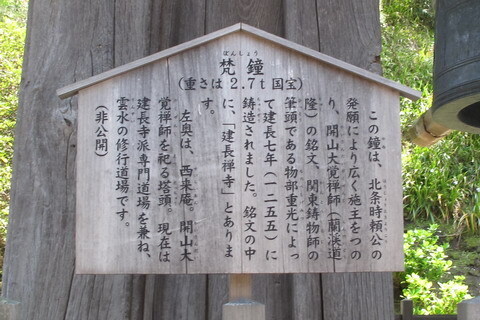 ぼんしょう
梵鐘
(重さは2.7t国宝)
この鐘は、北条時頼公の
発願により広く施主をつの
り、開山大覚禅師(蘭渓道
隆)の銘文、関東鋳物師の
筆頭である物部重光によっ
て建長七年(一二五五)に
鋳造されました。銘文の中
に、「建長禅寺」とありま
す。
左奥は、西来庵、開山大
覚禅師を祀る塔頭。現在は
建長寺派専門道場を兼ね、
雲水の修行道場です。
(非公開)